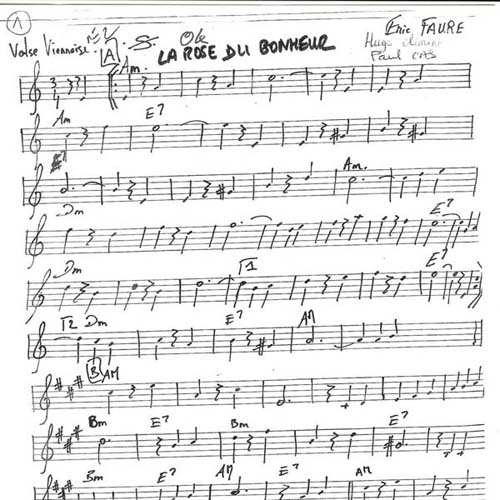 1
Valse Viennoise. A. Ok Eric FAURE
LA ROSE DU BONHEUR
Paul CAS
Am.
Am E7
E7 Am.
Dm E7
Dm 1 E7
2 Dm E7 A
B AM
Bm E7 Bm E7
Bm E7 A E7 AM